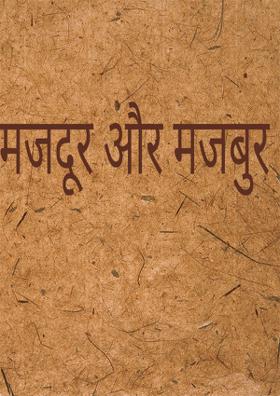 मजदूर और मजबुर